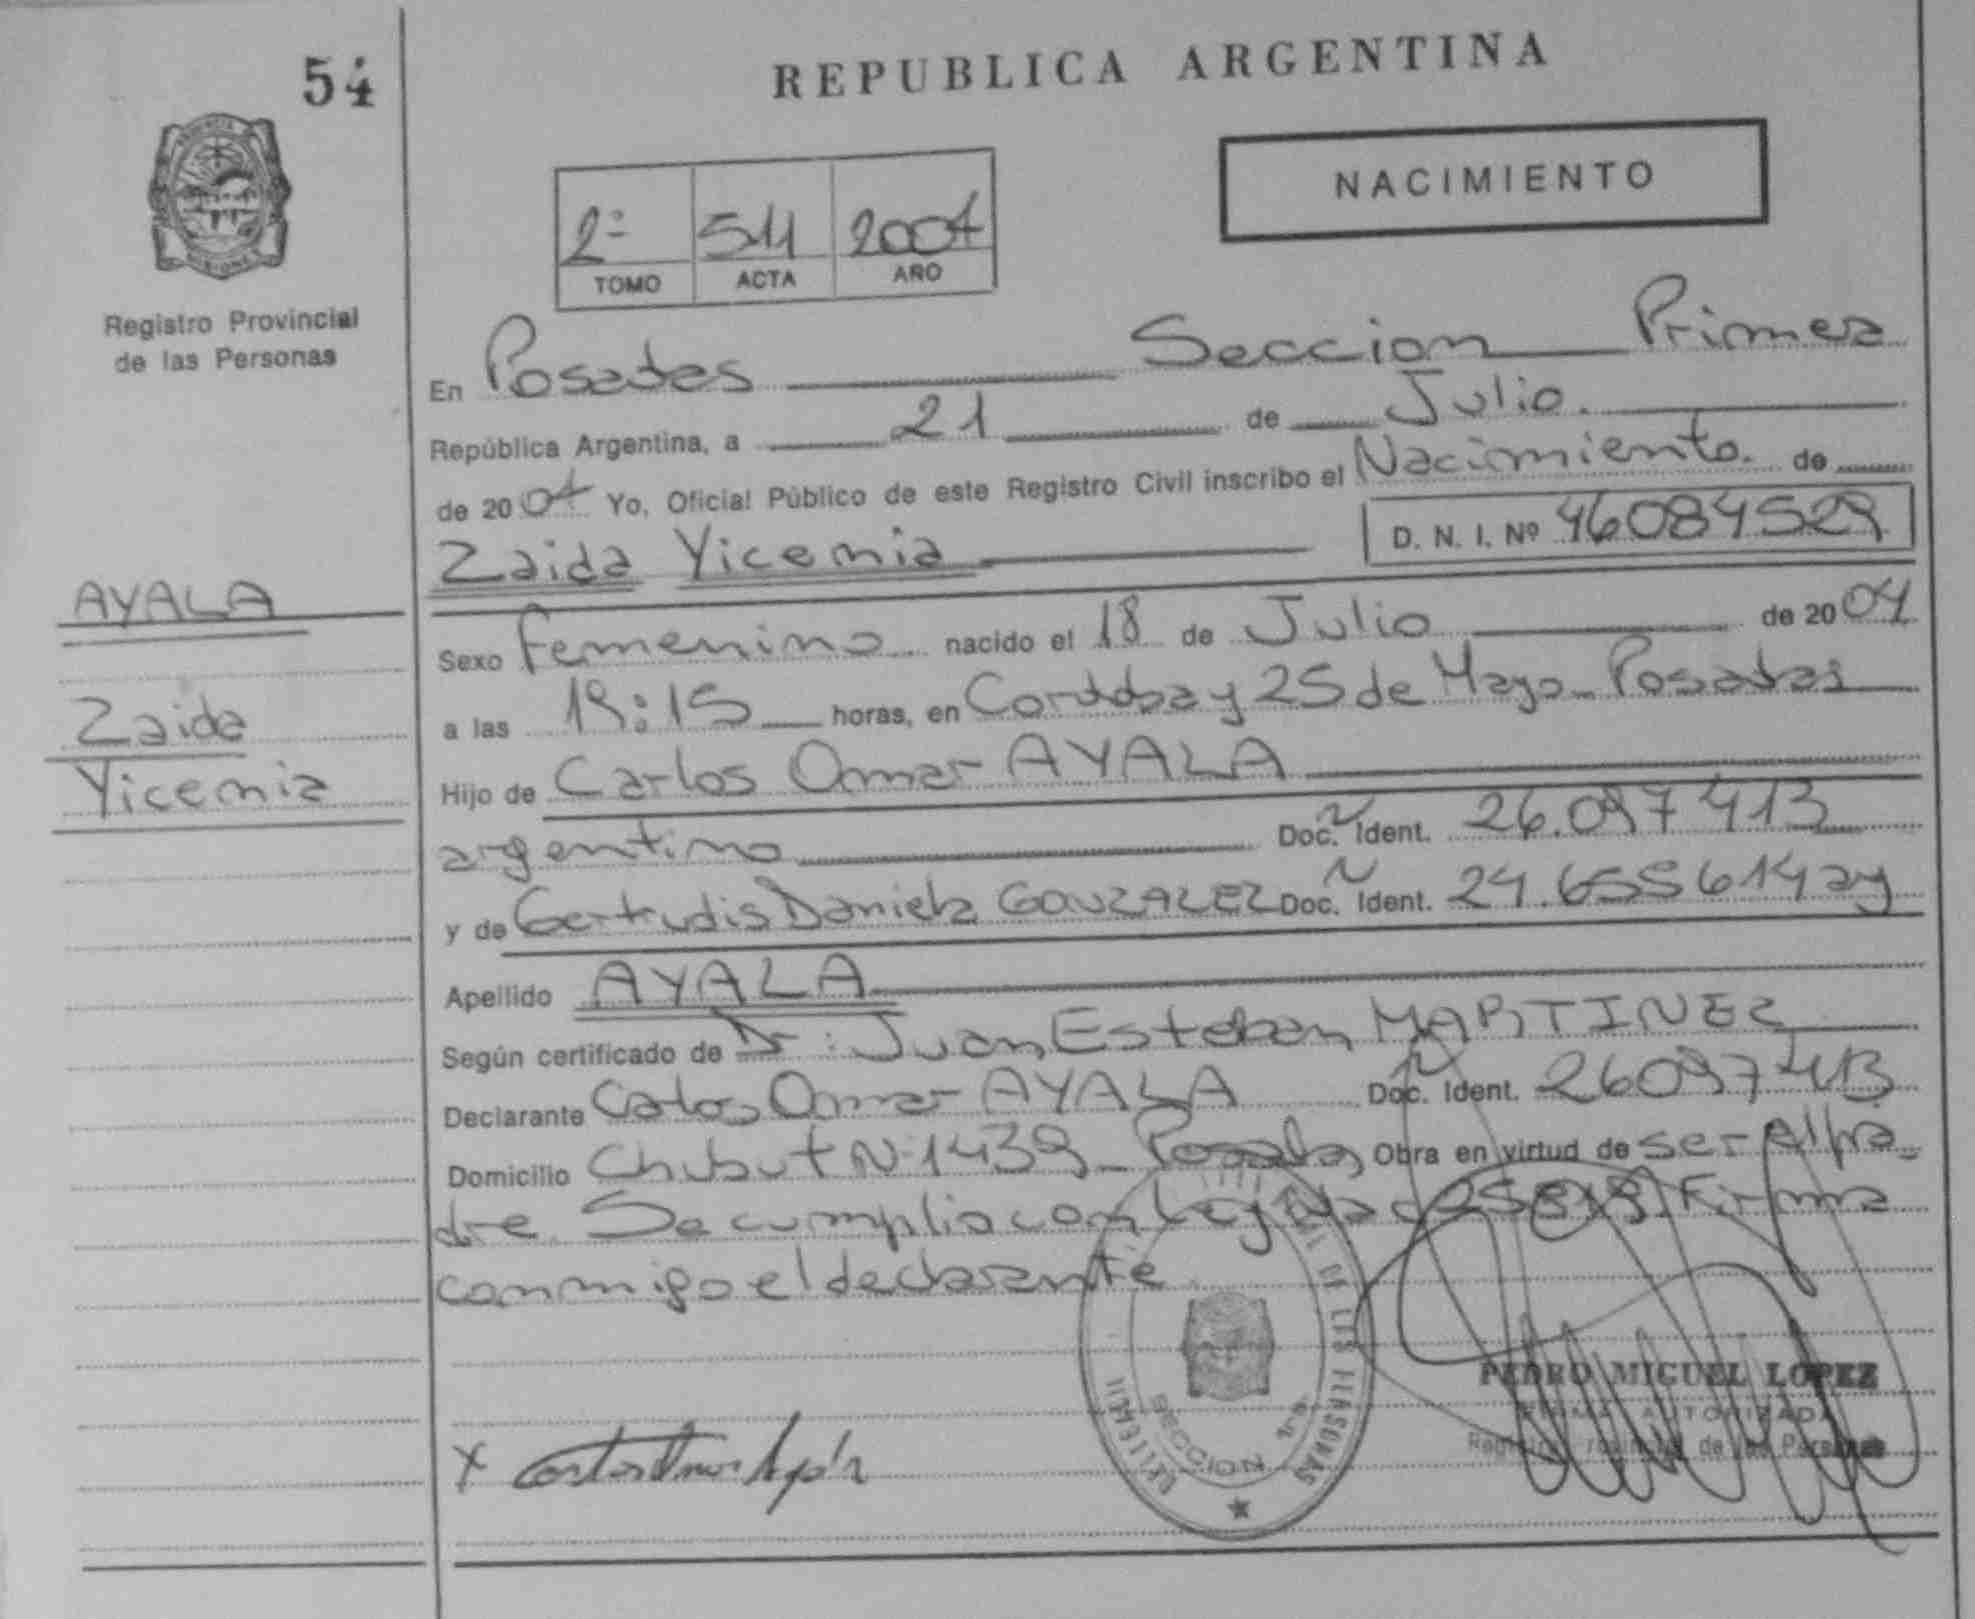 54
REPUBLICA ARGENTINA
NACIMIENTO
2º 511 2004
TOMO ACTA AÑO
Registro Provincial
de las Personas
En Posadas Seccion Primera
República Argentina, a 21 de Julio.
de 2004 Yo, Oficial Público de este Registro Civil inscribo el Nacimiento. de
Zaida Yicemia D. N. I. Nº 46084529
AYALA
Zaida
Yicemia
Sexo Femenino nacido el 18 de Julio de 2004
a las 19:15 horas, en Cordoba y 25 de Mayo Posadas
Hijo de Carlos Omar AYALA
argentino Doc. Ident. 26.097413
y de Gertrudis Daniela GONZALEZ Doc. Ident. 24.655614 ay
Apellido AYALA
Según certificado de Dr: Juan Esteban MARTINEZ
Declarante Carlos Omar AYALA Doc. Ident. 26097413
Domicilio Chubut Nº 1439 Posadas Obra en virtud de ser el pa
dre. Se cumplio con Ley Nac 25819. Firma
conmigo el declarante
PEDRO MIGUEL LOPEZ
FIRMA AUTORIZADA
Registro Provincial de las Personas
DE LAS PERSONAS
SECCION 1ra
x Carlos Omar Ayala